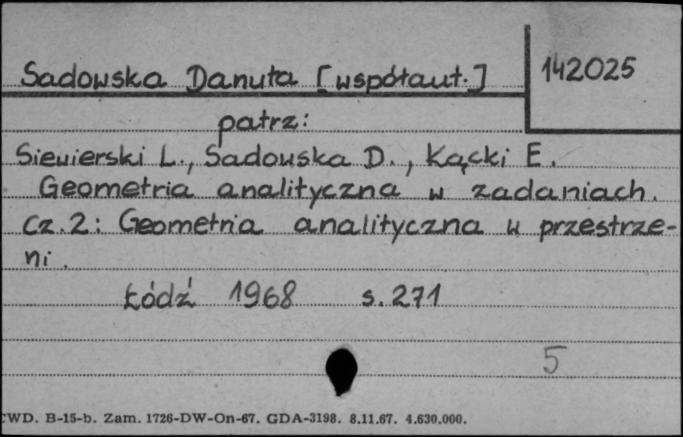 Sadowska Danuta [współaut.]
142025
patrz:
Siewierski L., Sadowska D., Kącki E.
Geometria analityczna w zadaniach.
Cz. 2: Geometria analityczna w przestrze-
ni.
Łódź 1968 s. 271
5
CWD. B-15-b. Zam. 1726-DW-On-67. GDA-3198. 8.11.67. 4.630.000.